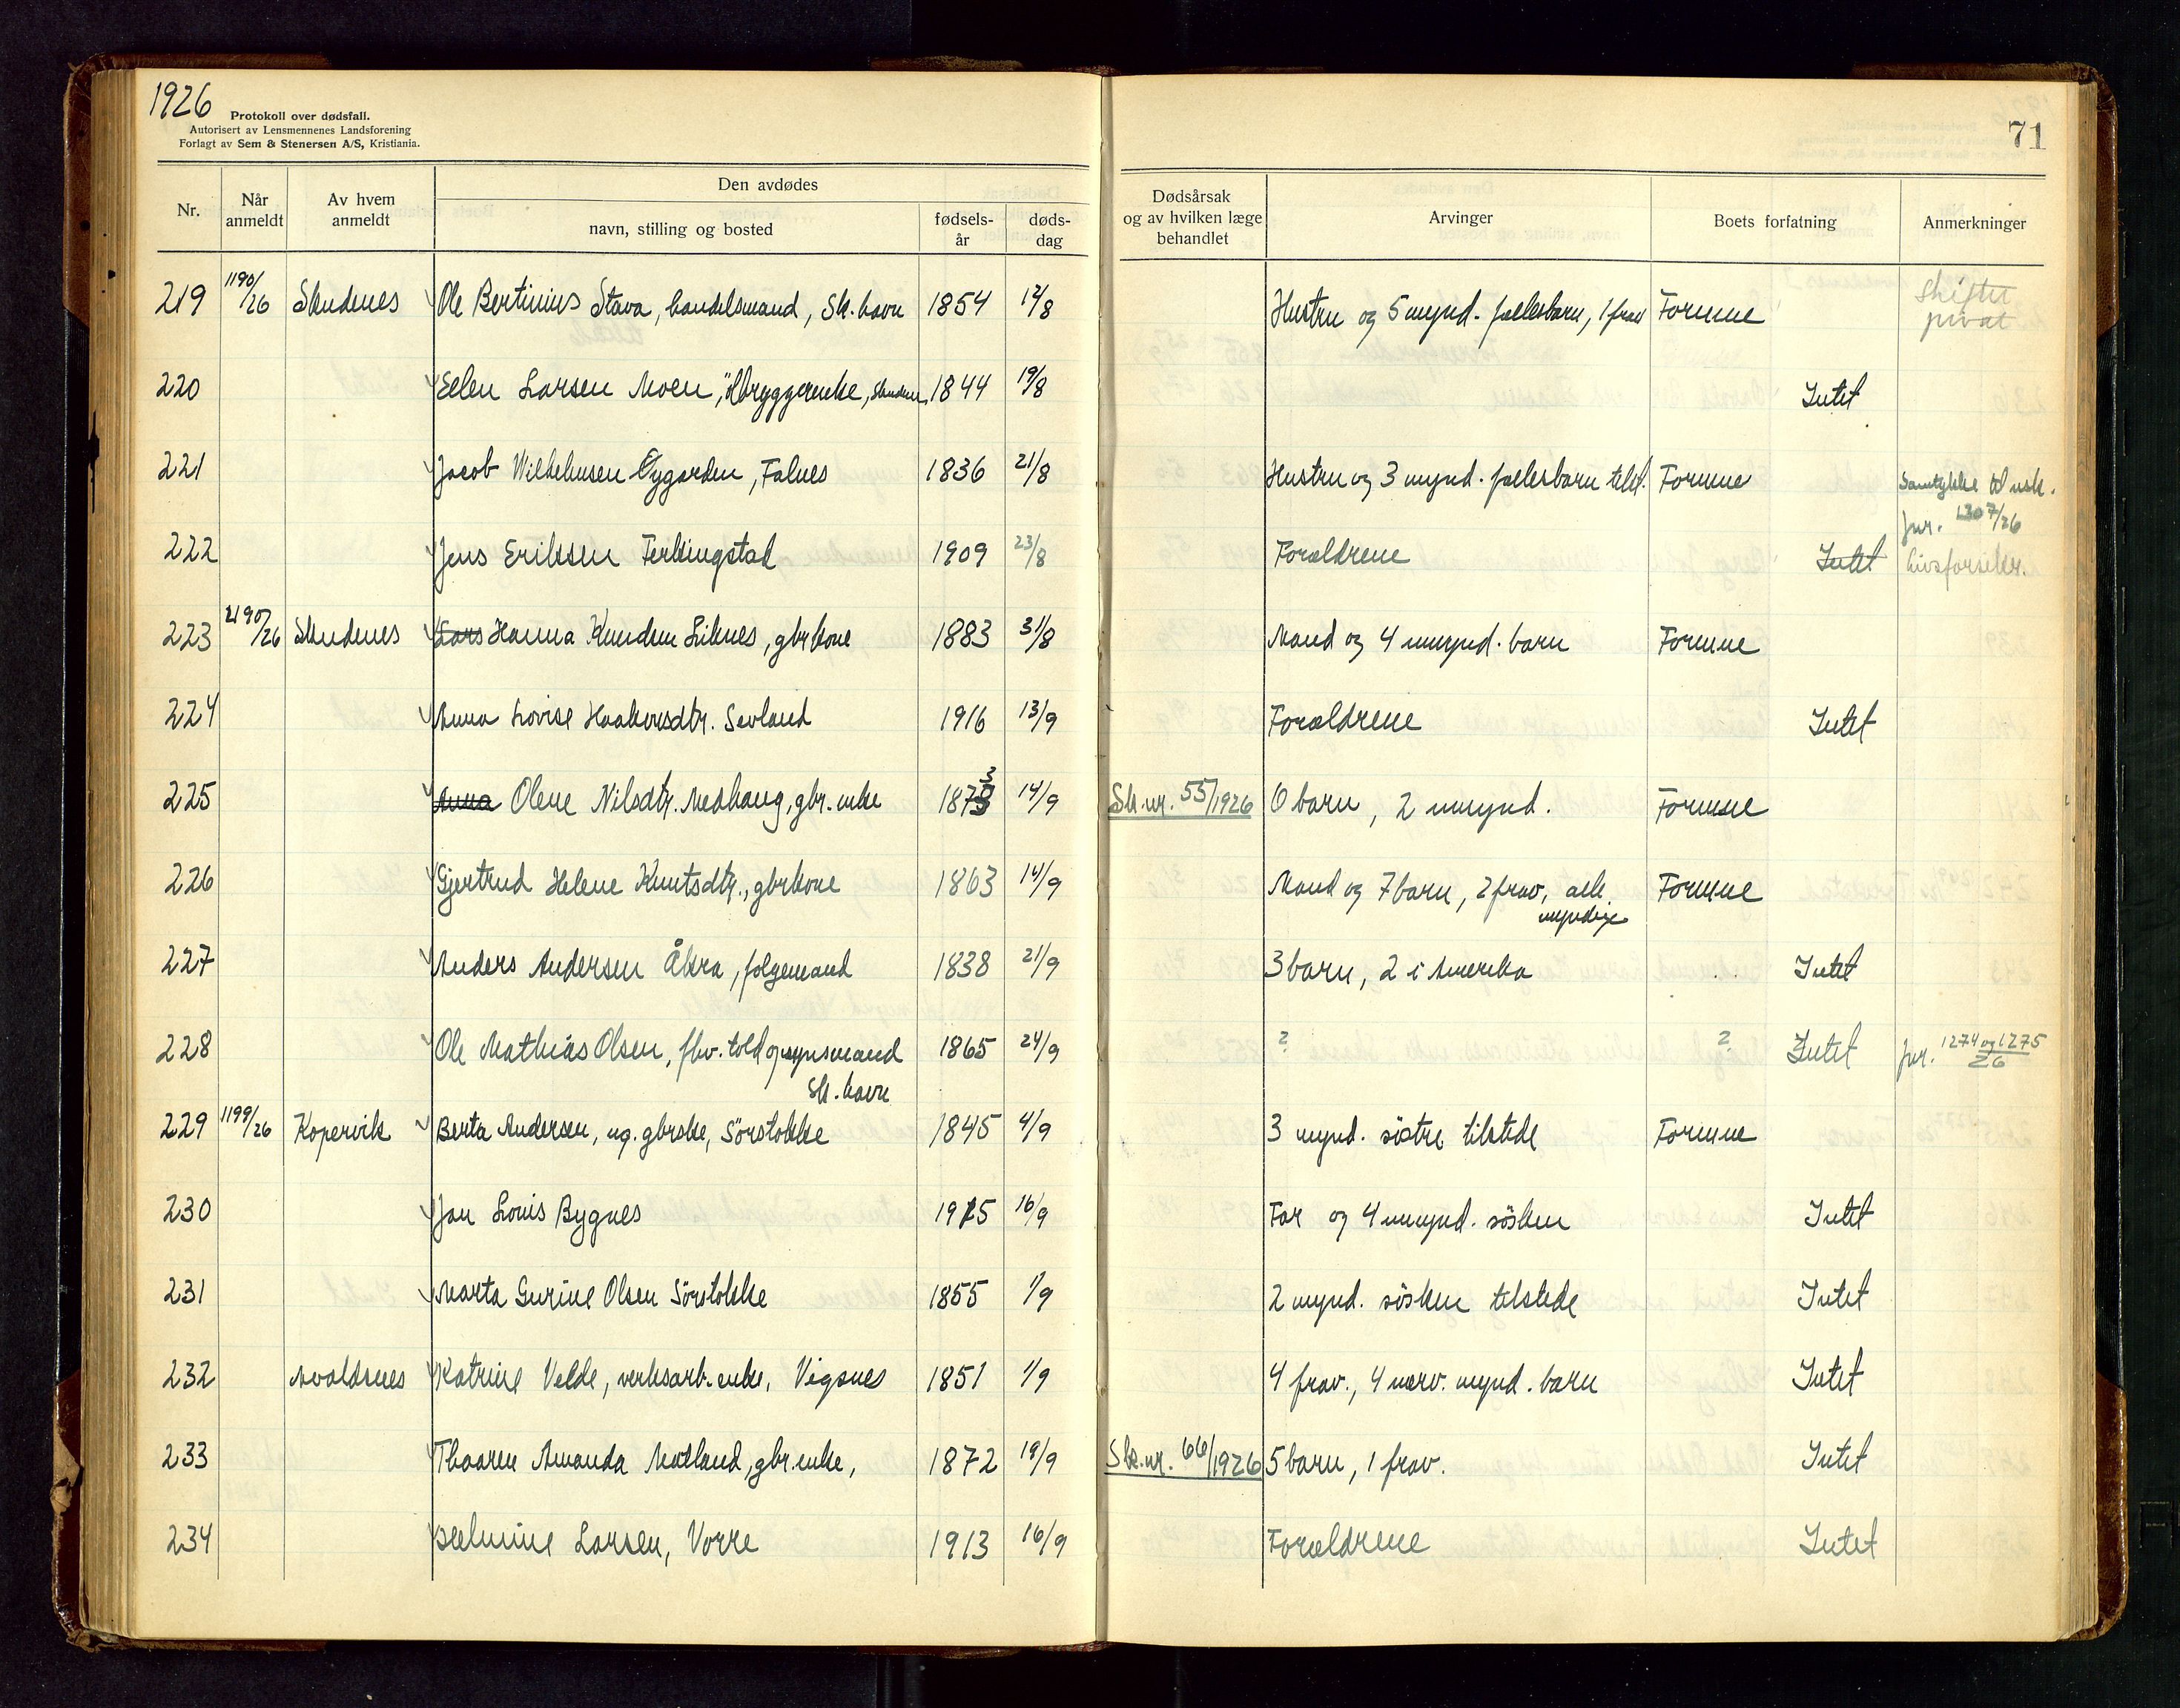 1926
Protokoll over dødsfall.
Autorisert av Lensmennenes Landsforening
Forlagt av Sem & Stenersen A/S, Kristiania.
71
Nr. Når anmeldt Av hvem anmeldt Den avdødes navn, stilling og bosted fødselsår dødsdag Dødsårsak og av hvilken læge behandlet Arvinger Boets forfatning Anmerkninger
219 1190/26 Skudenes Ole Bertinius Stava, handelsmand, Sk.havn 1854 12/8 Hustru og 5 mynd. fællesbarn, 1 frav Formue Skiftet privat
220 Eelen Larsen Moen, ölbryggerenke, Skudenes 1844 19/8 Intet
221 Jacob Wilhelmsen Öygarden, Falnes 1836 21/8 Hustru og 3 mynd. fællesbarn tilst. Formue Samtykke til usk.
jnr. 1307/26
222 Jens Eriksen Ferkingstad 1909 23/8 Forældrene Intet livsforsikr.
223 2190/26 Skudenes Lars Hanna Knudsen Liknes, gbrkone 1883 31/8 Mand og 4 umynd. barn Formue
224 Anna Lovise Haakonsdtr. Sevland 1916 13/9 Forældrene Intet
225 Anna Olene Nilsdtr. Medhaug, gbr.enke 1873 14/9 Sk.nr. 55/1926 6 barn, 2 umynd. Formue
226 Gjertrud Helene Knutsdtr., gbrkone 1863 14/9 Mand og 7 barn, 2 frav, alle
myndige Formue
227 Anders Andersen Åkra, folgemand 1838 21/9 3 barn, 2 i Amerika Intet
228 Ole Mathias Olsen, fhv. toldopsynsmand
Sk.havn 1865 24/9 ? ? Intet jnr. 1274 og 1275/26
229 1199/26 Kopervik Berta Andersen, ug. gbrske, Sörstokke 1845 4/9 3 mynd. söstre tilstede Formue
230 Jan Louis Bygnes 1915 16/9 Far og 4 umynd. sösken Intet
231 Marta Gurine Olsen Sörstokke 1855 1/9 2 mynd. sösken tilstede Intet
232 Avaldsnes Katrine Velde, verksarb.enke, Vigsnes 1851 1/9 4 frav., 4 nærv. mynd. barn Intet
233 Thoaren Amanda Matland, gbr.enke, 1872 19/9 Sk.nr. 66/1926 5 barn, 1 frav. Intet
234 Larsen, Vorre 1913 16/9 Forældrene Intet